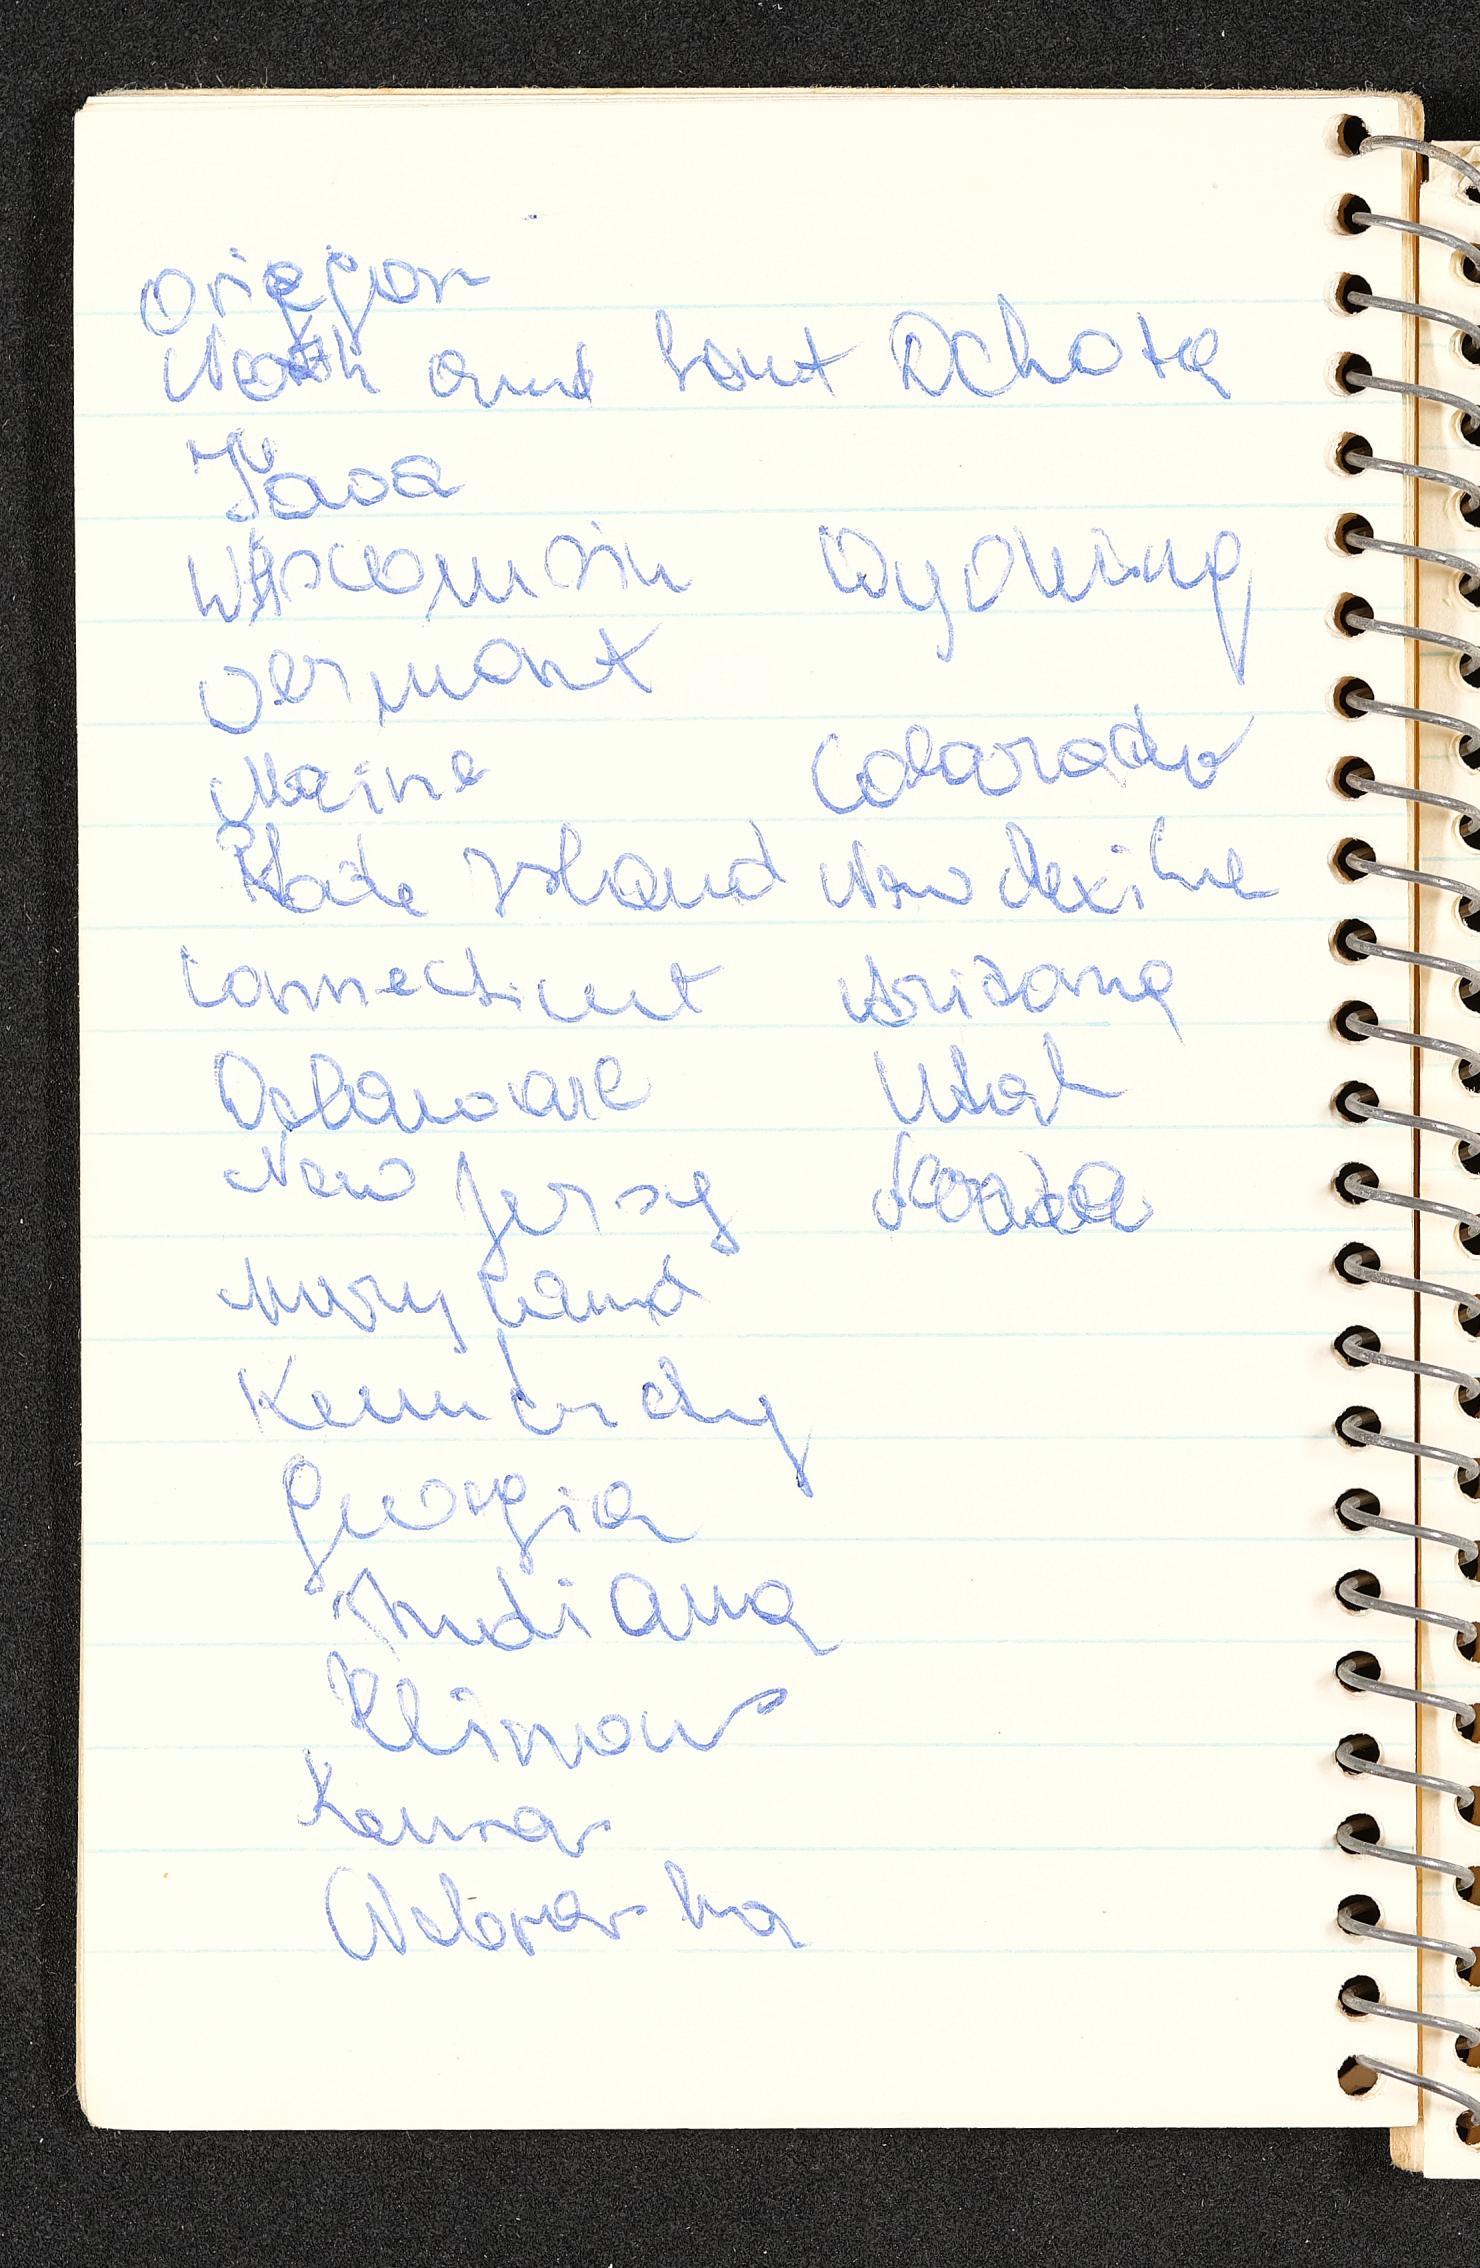 Oregon
North and Sout Dchota
Iowa
Wisconnsin Wyoming
Vermont
Maine Colorado
Rhode Island New Mexike
Connecticut Arizona
Delaware Utah
New Jersy
Maryland
Georgia
Indiana
Illinois
Kansas
Nebraska